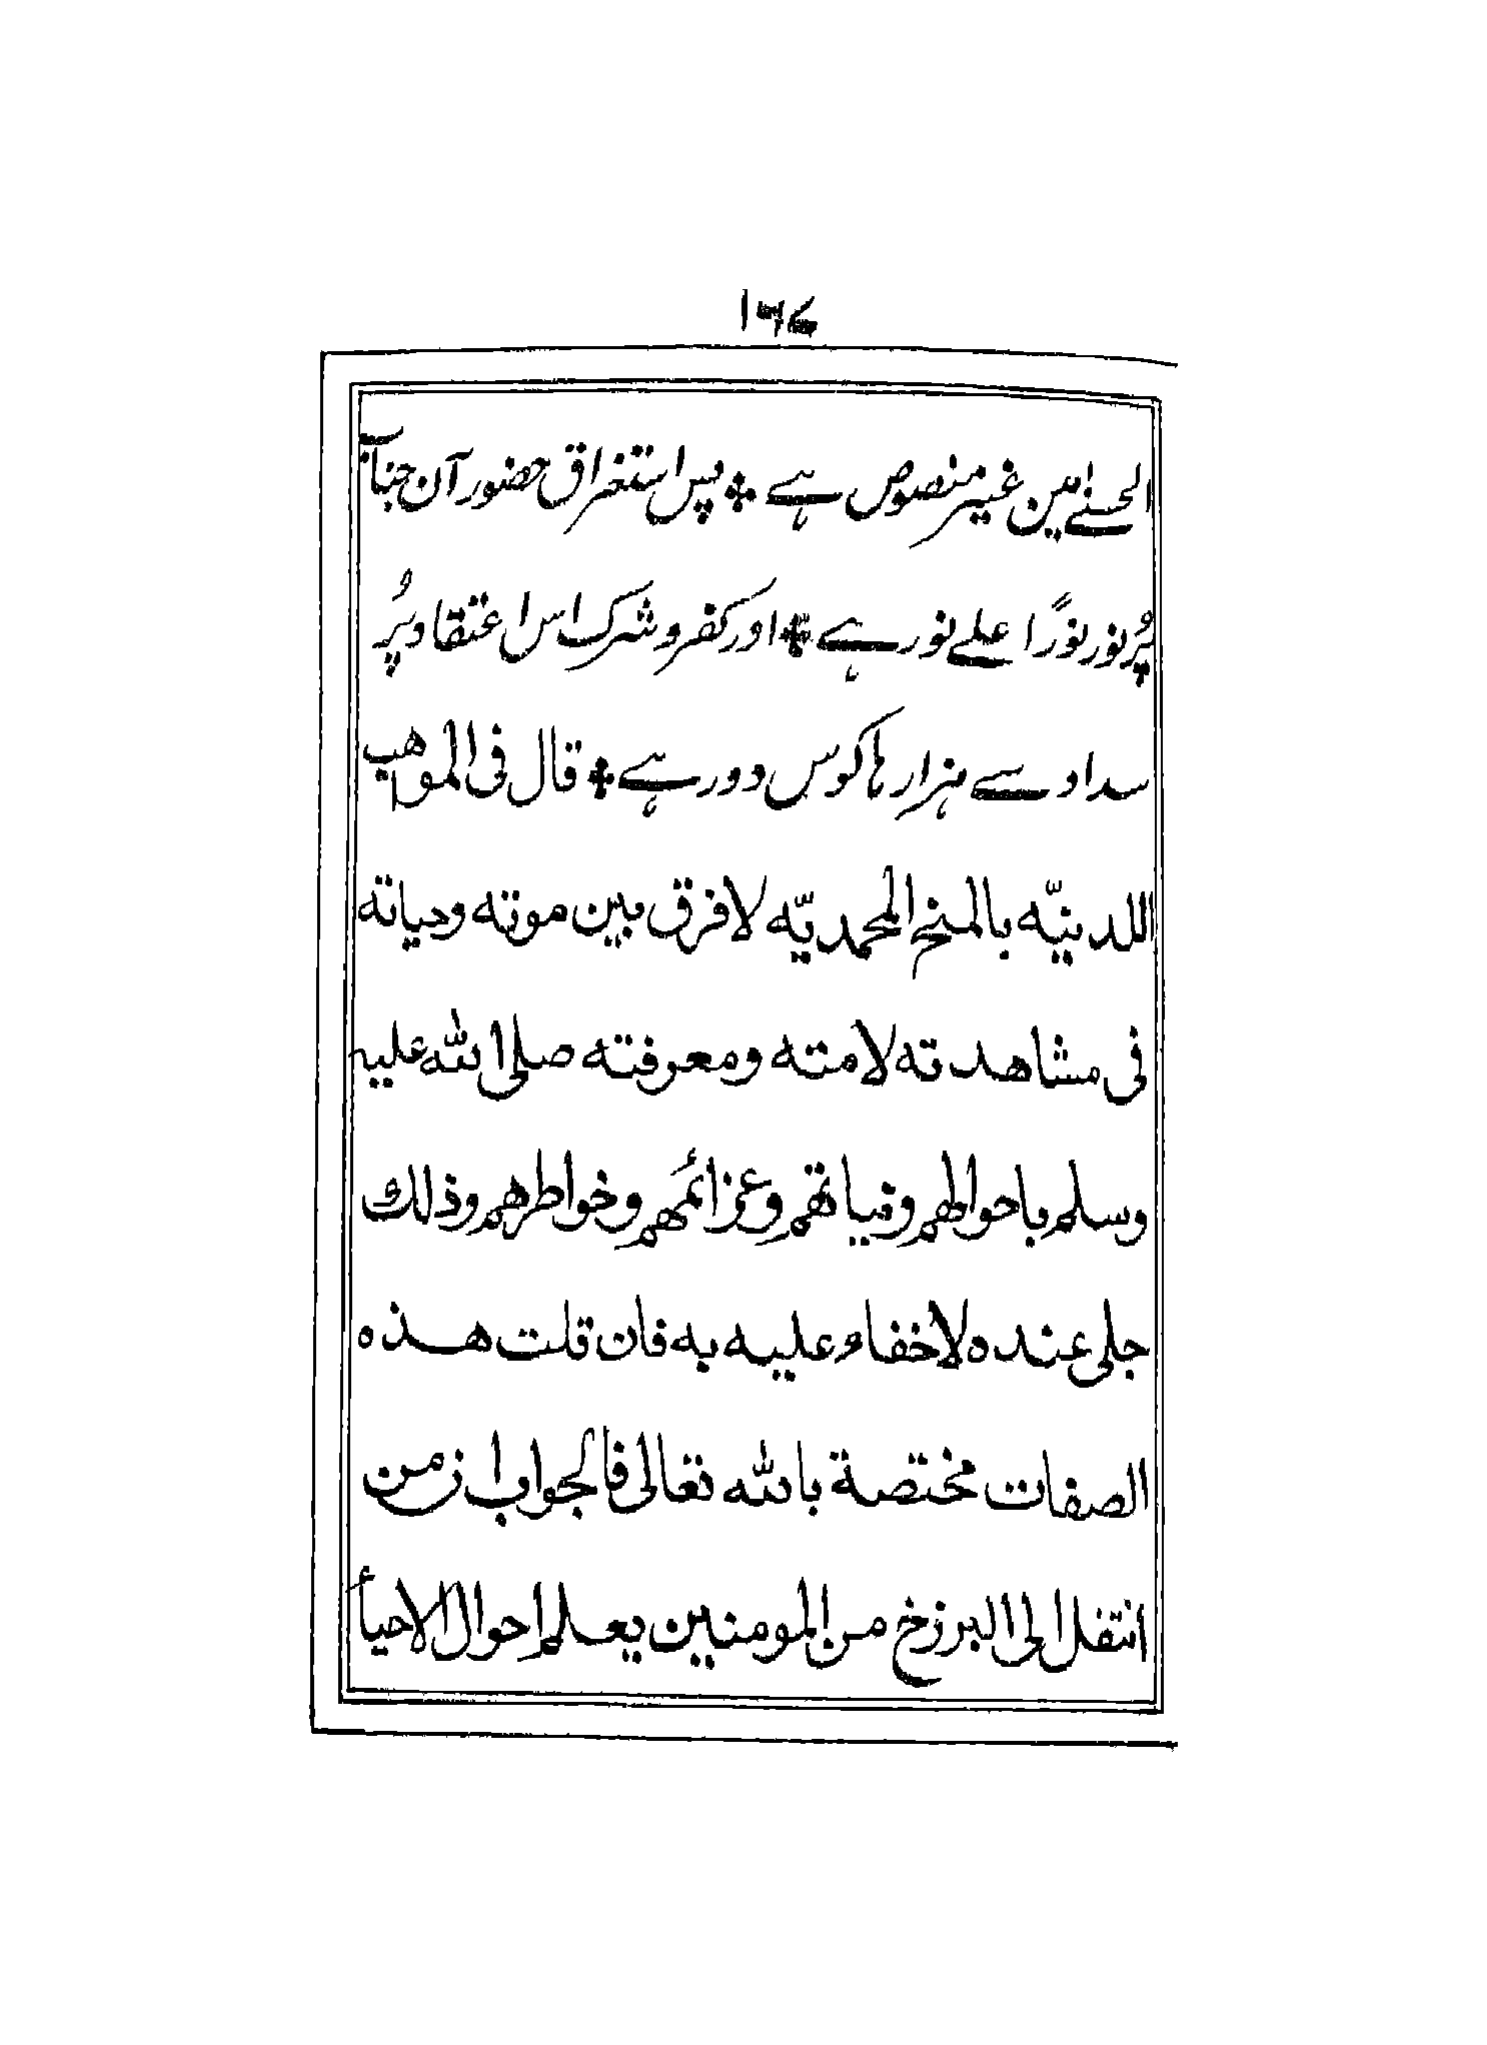 ۱۶۴
الحسنے مین غیر منصوص ہے ٭ پس استغراق حضور آن جناب
پُر نور نورًا علے نور ہے ٭ اور کفر و شرک اس اعتقاد پُر
سداد سے ہزارہا کوس دور ہے ٭ قال فی المواهب
اللدنیّه بالمنح المحمدیّه لا فرق بین موته وحیاته
فی مشاهدته لامته ومعرفته صلی الله علیه
وسلم باحوالهم ونیاتهم وعزائمهم وخواطرهم وذلك
جلی عنده لاخفاء علیه به فان قلت هذه
الصفات مختصة بالله تعالی فالجواب ان من
انتقل الی البرزخ من المومنین یعلم احوال الاحیاء